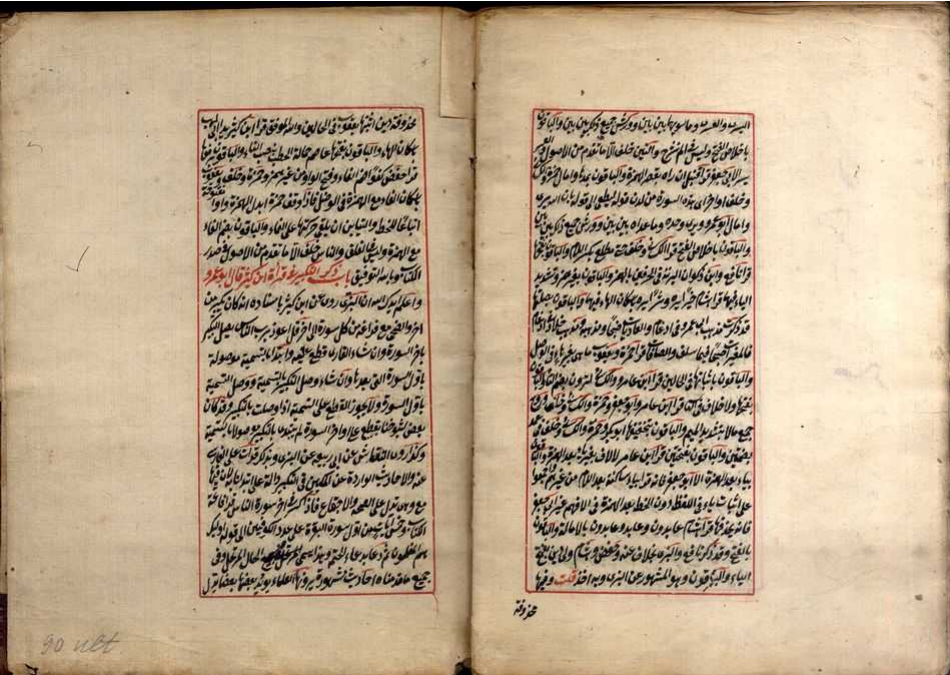 بين بين وورش جميع ذلك بين بين والباقون
باخلاص الفتح وليس في الم نشرح والتين خلف الا ما تقدم من الاصول
قرأ قنبل ان رأه بقصر الهمزة والباقون بمدها وامال حمزة
وخلف اواخر آي هذه السورة من لدن قوله ليطغى الى قوله بان الله يرى
وامال ابو عمرو يرى وحده وما عداه بين بين وورش جميع ذلك بين بين
والباقون باخلاص الفتح قرأ الكسائي وخلف حتى مطلع بكسر اللام والباقون بفتحها
قرأ نافع وابن ذكوان البريئة في الحرفين بالهمز والباقون بغير همز وتشديد
الياء فيهما قرأ هشام خيرا يره وشرا يره باسكان الهاء فيهما والباقون بصلتها
قد ذكرت مذهب ابي عمرو في ادغام والعاديات ضبحا ومذهبه ومذهب خلاد في ادغام
فالمغيرات صبحا فيما سلف والصافات قرأ حمزة ويعقوب ما هي بغير هاء في الوصل
والباقون باثباتها في الحالين قرأ ابن عامر والكسائي لترون بضم التاء والباقون
بفتحها ولا خلاف في الثاني قرأ ابن عامر وابو جعفر وحمزة والكسائي وخلف وروح
جمع مالا بتشديد الميم والباقون بتخفيفها ابو بكر وحمزة والكسائي وخلف في عمد
بضمتين والباقون بفتحتين قرأ ابن عامر لالاف بغير ياء بعد الهمزة والباقون
بياء بعد الهمزة الا ابو جعفر فانه قرأ بياء ساكنة بعد اللام من غير همز واجمعوا
على اثبات ياء في اللفظ دون الخط بعد الهمزة في الافهم غير ابي جعفر
فانه يحذفها قرأ هشام عابدون وعابد وعابدون بالامالة والباقون
بالفتح وقد ذكر نافع والبزي بخلاف عنه وحفص وهشام ولي دين بفتح
الياء والباقون وهو المشهور عن البزي وبه اخذ قلت وفيها
محذوفة
محذوفة دين اثبتها يعقوب في الحالين والله الموفق قرأ ابن كثير يدا ابي لهب
باسكان الهاء والباقون بفتحها عاصم حمالة الحطب بنصب التاء والباقون برفعها
قرأ حفص كفوا بضم الفاء وفتح الواو من غير همز وحمزة وخلف ويعقوب
باسكان الفاء مع الهمزة في الوصل فاذا وقف حمزة ابدل الهمزة واوا مفتوحة
اتباعا للخط والقياس ان يلقي حركتها على الفاء والباقون بضم الفاء
مع الهمزة وليس في الفلق والناس خلف الا ما تقدم من الاصول في صدر
الكتاب وبالله التوفيق باب ذكر التكبير في قراءة ابن كثير قال ابو عمرو
واعلم ايدك الله ان البزي روى عن ابن كثير باسناده انه كان يكبر من
اخر والضحى مع فراغه من كل سورة الى اخر قل اعوذ برب الناس يصل التكبير
باخر السورة وان شاء القارئ قطع عليه وابتدأ بالتسمية موصولة
باول السورة التي بعدها وان شاء وصل التكبير بالتسمية ووصل التسمية
باول السورة ولا يجوز القطع على التسمية اذا وصلت بالتكبير وقد كان
بعض شيوخنا يقطع على اواخر السور ثم يبتدئ بالتكبير موصولا بالتسمية
وكذا روى النقاش عن ابي ربيعة عن البزي وبذلك قرأت على الفارسي
عنه والاحاديث الواردة عن المكيين في التكبير دالة على ما ابتدأنا به لان فيها
مع وهي تدل على الصحبة والاجتماع فاذا كبر في اخر سورة الناس قرأ فاتحة
الكتاب وخمس آيات من اول سورة البقرة على عدد الكوفيين الى قوله اولئك
هم المفلحون ثم دعا بدعاء الختم وهذا يسمى الحال المرتحل وفي
جميع ما قدمناه احاديث مشهورة يرويها العلماء يؤيد بعضها بعضا تدل
90